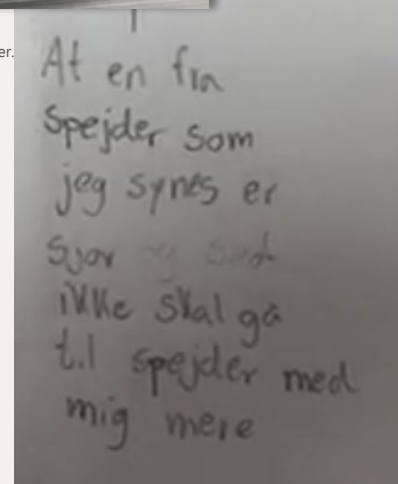 er.
At en fin
Spejder som
jeg synes er
Sjov og sød
ikke skal gå
til spejder med
mig mere